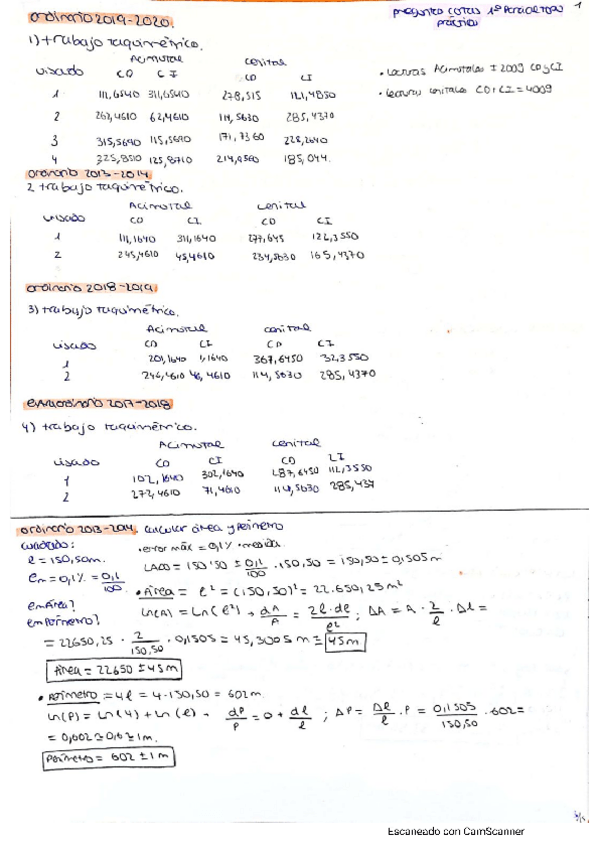 ordinario 2019-2020.
preguntas cortas 1º Parcial todo práctica
1
1) trabajo taquimétrico.
Acimutal Cenital
visado CD CI CD CI
1 111,6540 311,6540 278,515 121,4850
2 262,4610 62,4610 114,5630 285,4370
3 315,5690 115,5690 171,7360 228,2640
4 325,8510 125,8710 214,9560 185,044.
· Lecturas Acimutales ± 200g CD y CI
· Lecturas cenitales CD + CI = 400g
ordinario 2013-2014
2 trabajo taquimétrico.
Acimutal Cenital
visado CD CI CD CI
1 111,1640 311,1640 277,645 122,3550
2 245,4610 45,4610 234,5630 165,4370
ordinario 2018-2019.
3) trabajo taquimétrico.
Acimutal cenital
visado CD CI CD CI
1 201,1640 1,1640 367,6450 32,3550
2 246,4610 46,4610 114,5630 285,4370
extraordinario 2017-2018
4) trabajo taquimétrico.
Acimutal cenital
visado CD CI CD CI
1 102,1640 302,1640 287,6450 112,3550
2 272,4610 71,4610 114,5630 285,437
ordinario 2013-2014. calcular área y perímetro
cuadrado: · error máx = 0,1% · medida.
l = 150,50m. LADO = 150'50 ± 0,1/100 · 150,50 = 150,50 ± 0,1505 m
em = 0,1% = 0,1/100
· Área = l² = (150,50)² = 22.650,25 m²
em Área? ln(A) = Ln(l²) → dA/A = 2l·dl/l² ; ΔA = A · 2/l · Δl =
em Perímetro?
= 22650,25 · 2/150,50 · 0,1505 = 45,3005 m ≈ 45m
Área = 22650 ± 45 m
· Perímetro = 4l = 4·150,50 = 602 m.
ln(P) = Ln(4) + Ln(l) → dP/P = 0 + dl/l ; ΔP = Δl/l · P = 0,1505/150,50 · 602 =
= 0,602 ≈ 0,6 ≈ 1m.
Perímetro = 602 ± 1 m
Escaneado con CamScanner